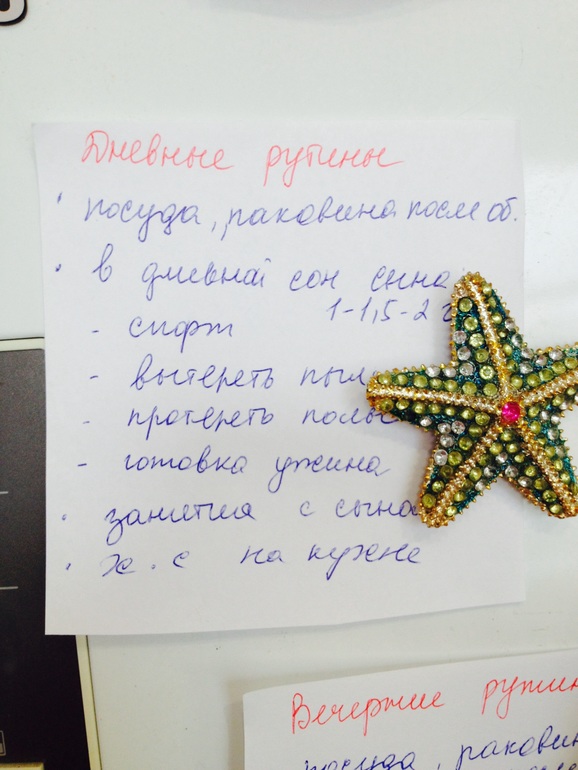 Дневные рутины
· посуда, раковина после об.
· в дневной сон сына
1-1,5-2 
- спорт
- вытереть пыл
- протереть полы
- готовка ужина
· занятия с сына
· ж.с на кухне
Вечерние рутин
посуда, раковин